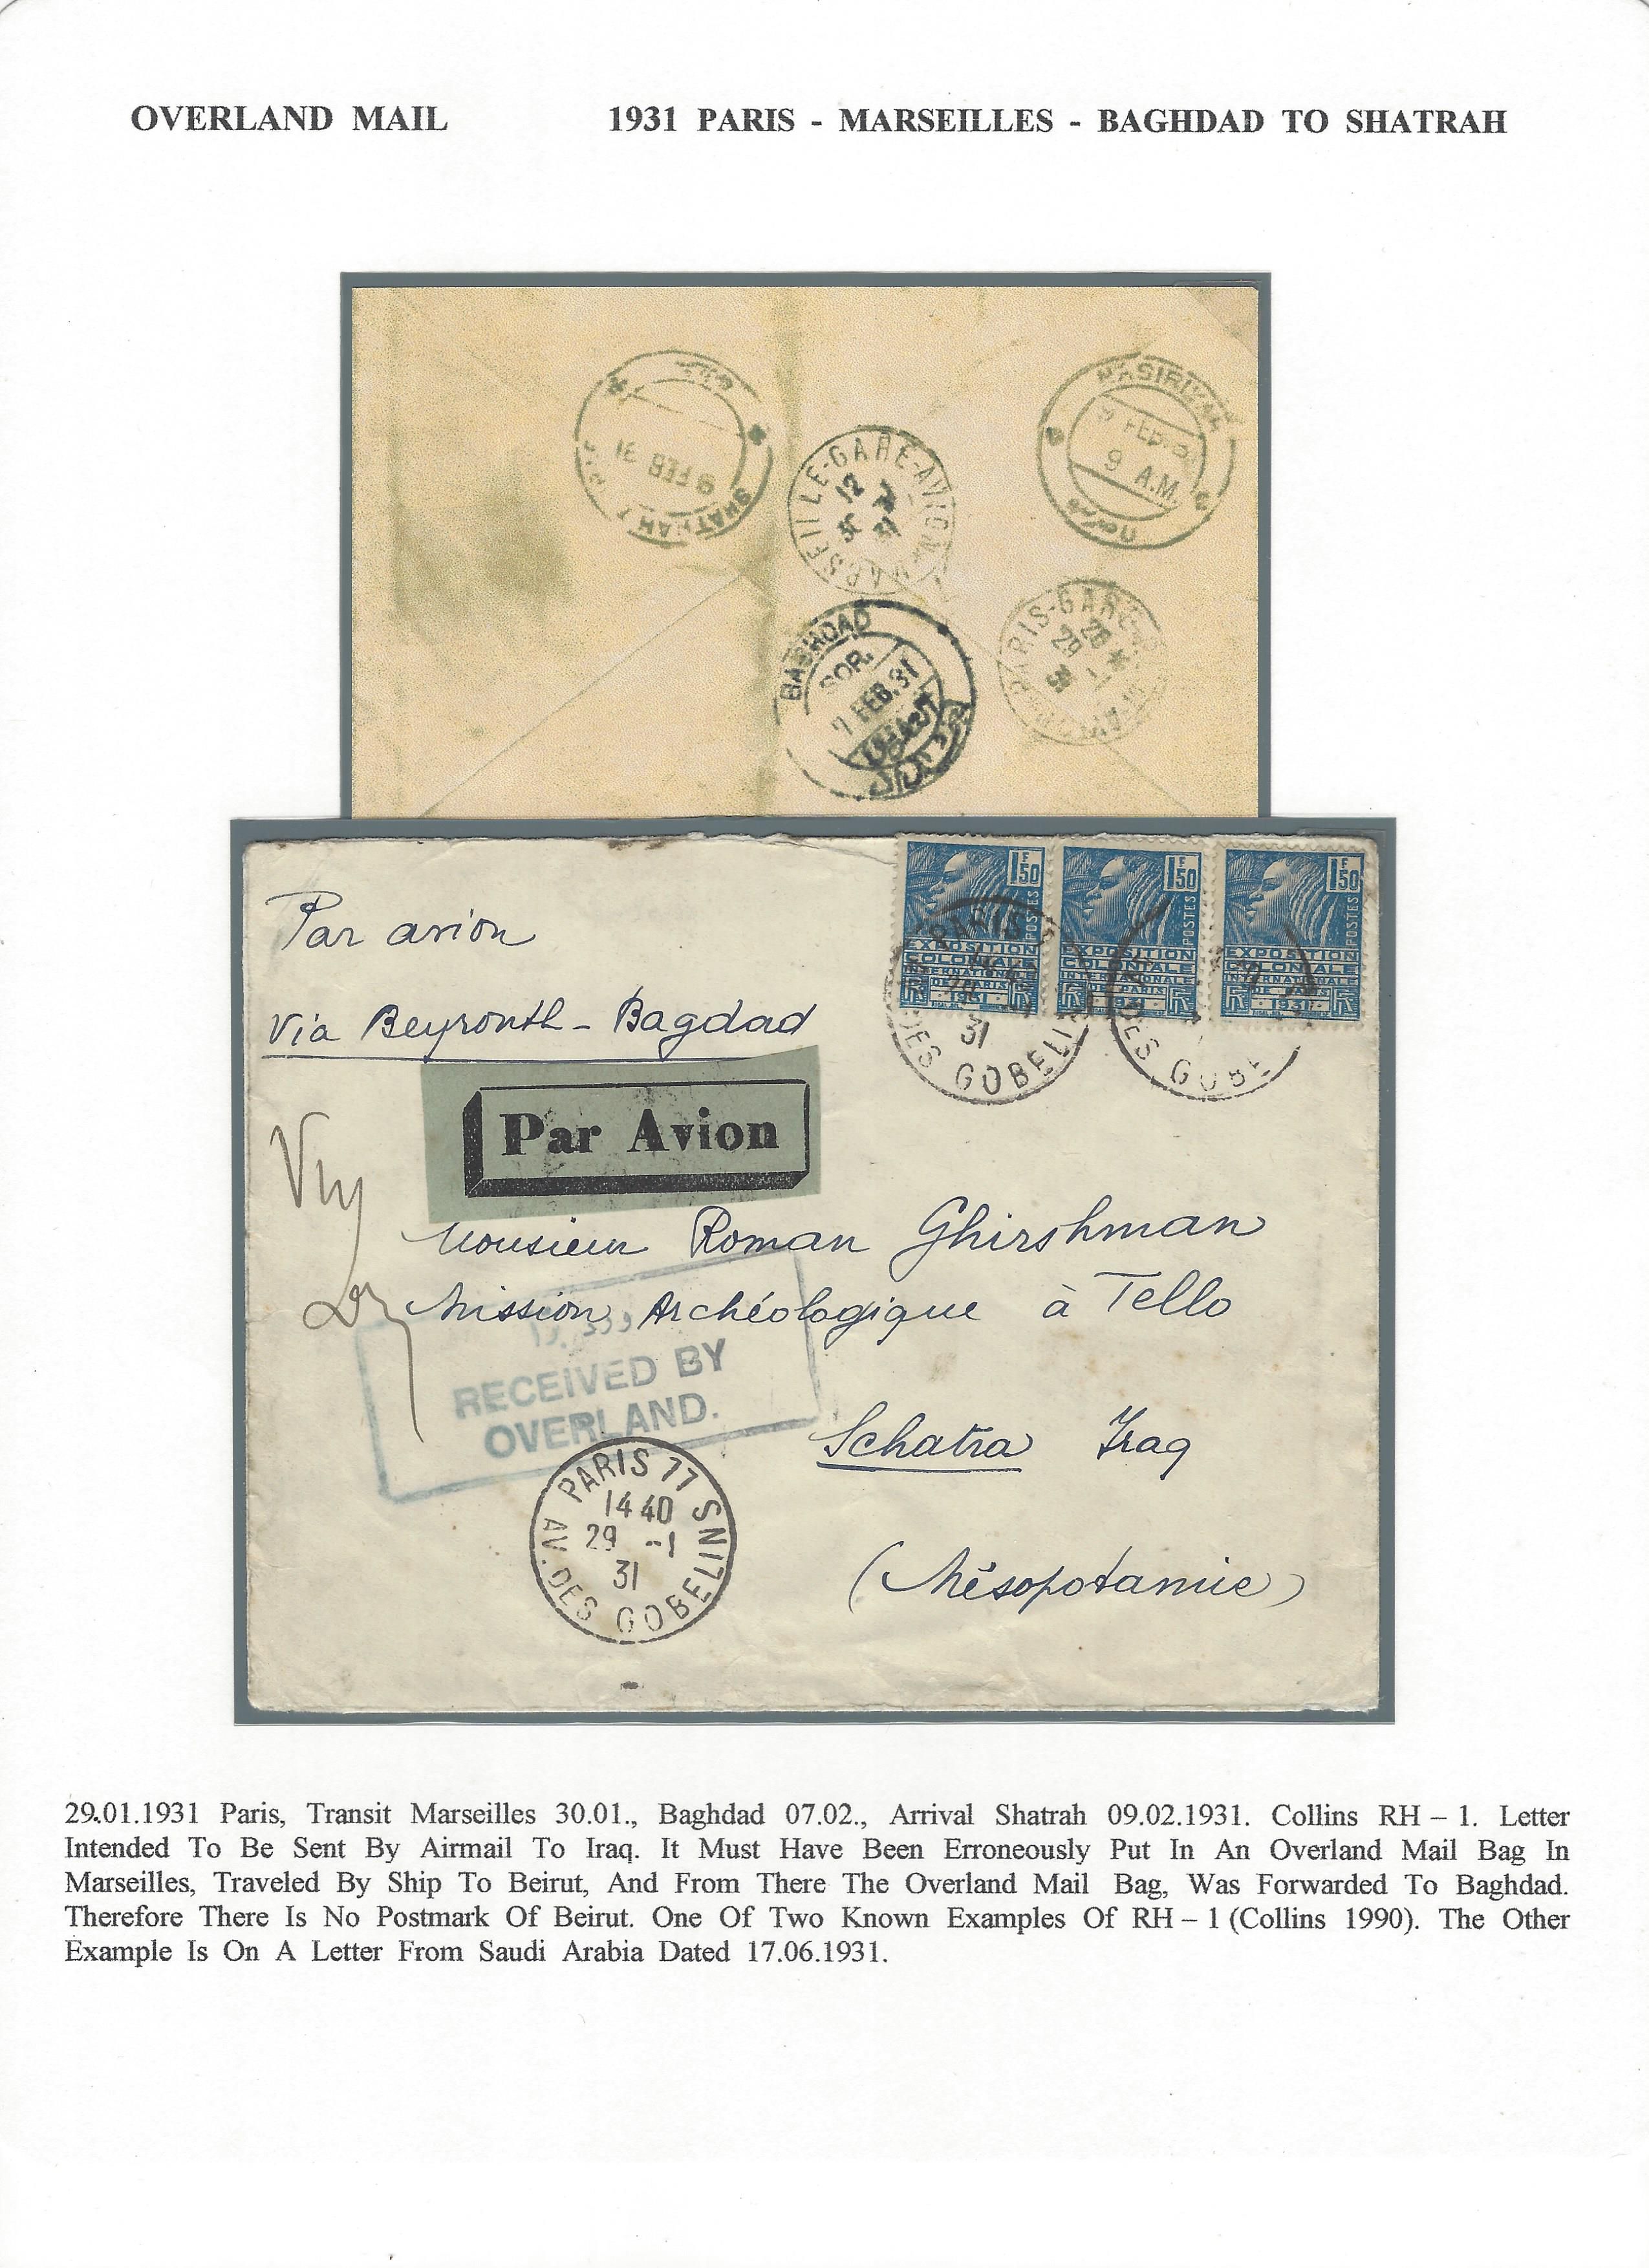 OVERLAND MAIL
1931 PARIS - MARSEILLES - BAGHDAD TO SHATRAH
SHATRAH
9 FEB 31
MARSEILLE-GARE-AVION
12
30
31
NASIRIYAH
9 FEB. 31
9 A.M.
BAGHDAD
SOR.
7 FEB. 31
PARIS-GARE
29
31
1F50
POSTES
EXPOSITION
COLONIALE
INTERNATIONALE
DE PARIS
1931
1F50
POSTES
EXPOSITION
COLONIALE
INTERNATIONALE
DE PARIS
1931
1F50
POSTES
EXPOSITION
COLONIALE
INTERNATIONALE
DE PARIS
1931
PARIS
31
DES GOBELINS
DES GOBE
Par avion
Via Beyrouth - Bagdad
Par Avion
Monsieur Roman Ghirshman
Mission Archéologique à Tello
RECEIVED BY
OVERLAND.
Schatra Iraq
(Mésopotamie)
PARIS 77
14 40
29 -1
31
AV. DES GOBELINS
29.01.1931 Paris, Transit Marseilles 30.01., Baghdad 07.02., Arrival Shatrah 09.02.1931. Collins RH – 1. Letter
Intended To Be Sent By Airmail To Iraq. It Must Have Been Erroneously Put In An Overland Mail Bag In
Marseilles, Traveled By Ship To Beirut, And From There The Overland Mail Bag, Was Forwarded To Baghdad.
Therefore There Is No Postmark Of Beirut. One Of Two Known Examples Of RH – 1 (Collins 1990). The Other
Example Is On A Letter From Saudi Arabia Dated 17.06.1931.